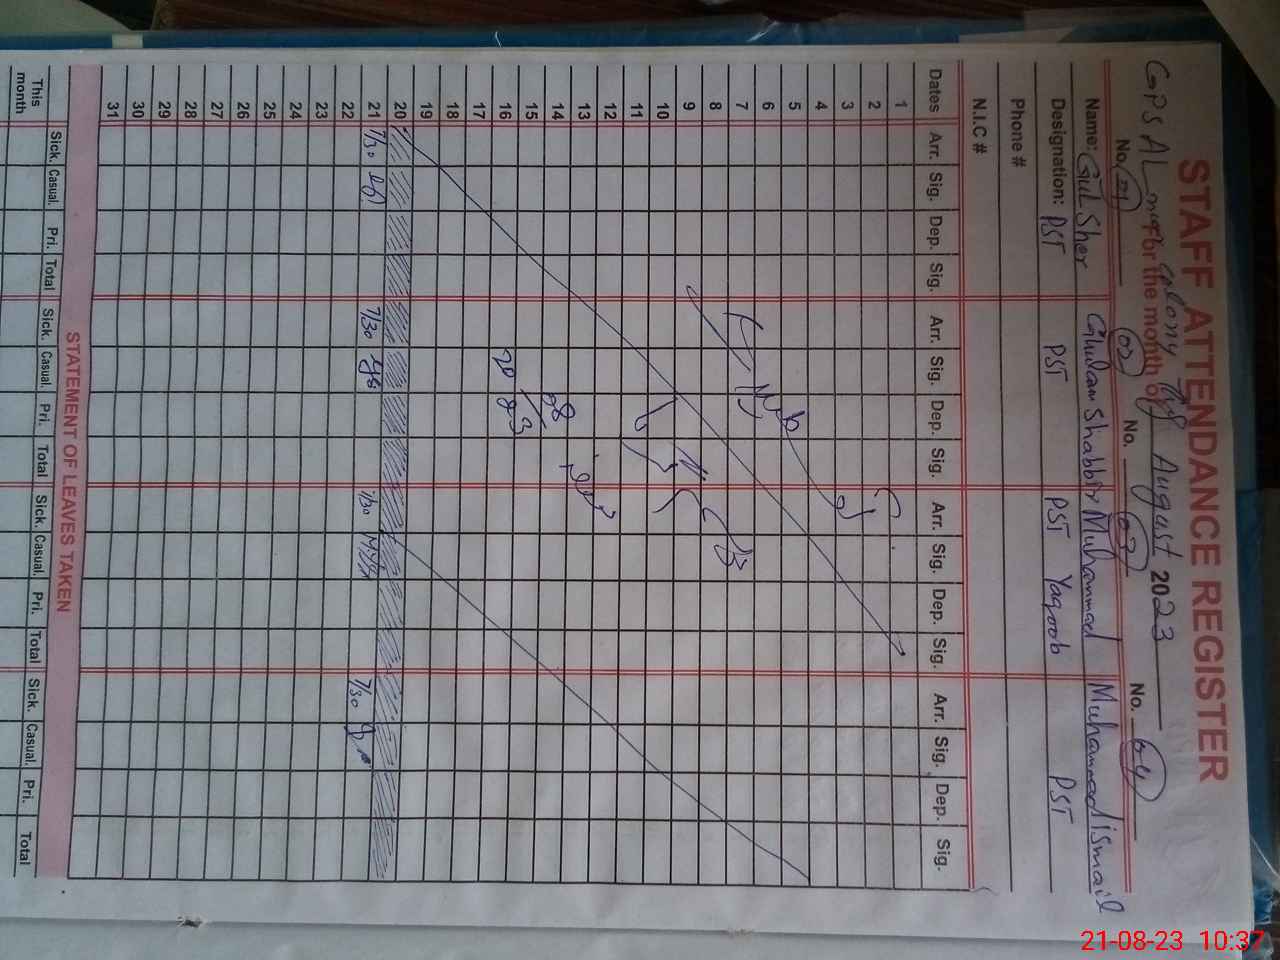 STAFF ATTENDANCE REGISTER
GPS AL colony for the month of August 2023
No. 01 No. 02 No. 03 No. 04
Name: Gul Sher Ghulam Shabbir Muhammad Yaqoob Muhammad ismail
Designation: PST PST PST PST
Phone #
N.I.C #
Dates Arr. Sig. Dep. Sig. Arr. Sig. Dep. Sig. Arr. Sig. Dep. Sig. Arr. Sig. Dep. Sig.
1
2
3
4
5
6
7
8
9
10
11
12
13
14
15
16
17
18
19
20
21 7/30 7/30 7/30 7/30
22
23
24
25
26
27
28
29
30
31
STATEMENT OF LEAVES TAKEN
Sick. Casual. Pri. Total Sick. Casual. Pri. Total Sick. Casual. Pri. Total Sick. Casual. Pri. Total
This month
21-08-23 10:37